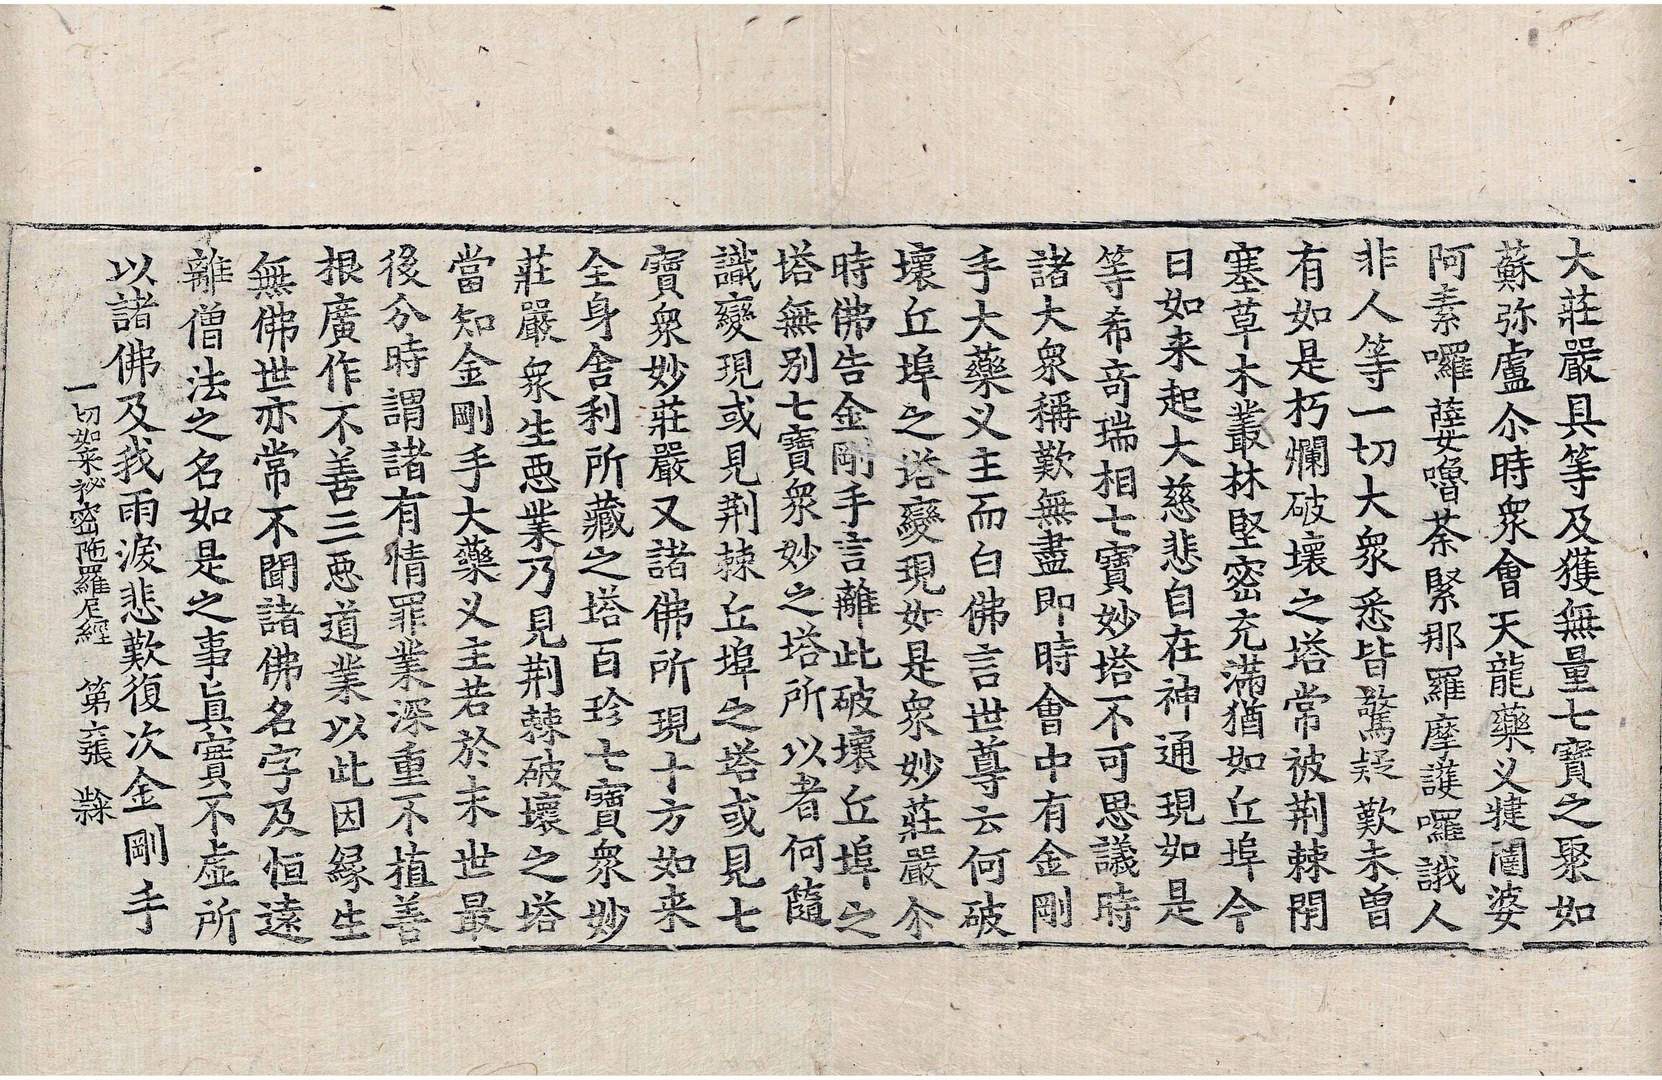 大莊嚴具等及獲無量七寶之聚如
蘇弥盧尒時衆會天龍藥义揵闥婆
阿素囉薩婆嚕荼緊那羅摩護囉誐人
非人等一切大衆悉皆驚疑歎未曾
有如是朽爛破壞之塔常被荆棘閇
塞草木叢林堅密充滿猶如丘埠今
日如来起大慈悲自在神通現如是
等希奇瑞相七寶妙塔不可思議時
諸大衆稱歎無盡即時會中有金剛
手大藥义主而白佛言世尊云何破
壞丘埠之塔變現如是衆妙莊嚴尒
時佛告金剛手言離此破壞丘埠之
塔無別七寶衆妙之塔所以者何隨
識變現或見荆棘丘埠之塔或見七
寶衆妙莊嚴又諸佛所現十方如来
全身舎利所藏之塔百珍七寶衆妙
莊嚴衆生惡業乃見荆棘破壞之塔
當知金剛手大藥义主若於未世最
後分時謂諸有情罪業深重不植善
根廣作不善三惡道業以此因縁生
無佛世亦常不聞諸佛名字及恒遠
離僧法之名如是之事眞實不虛所
以諸佛及我雨淚悲歎復次金剛手
一切如来祕密陁羅尼經　第六張　槳